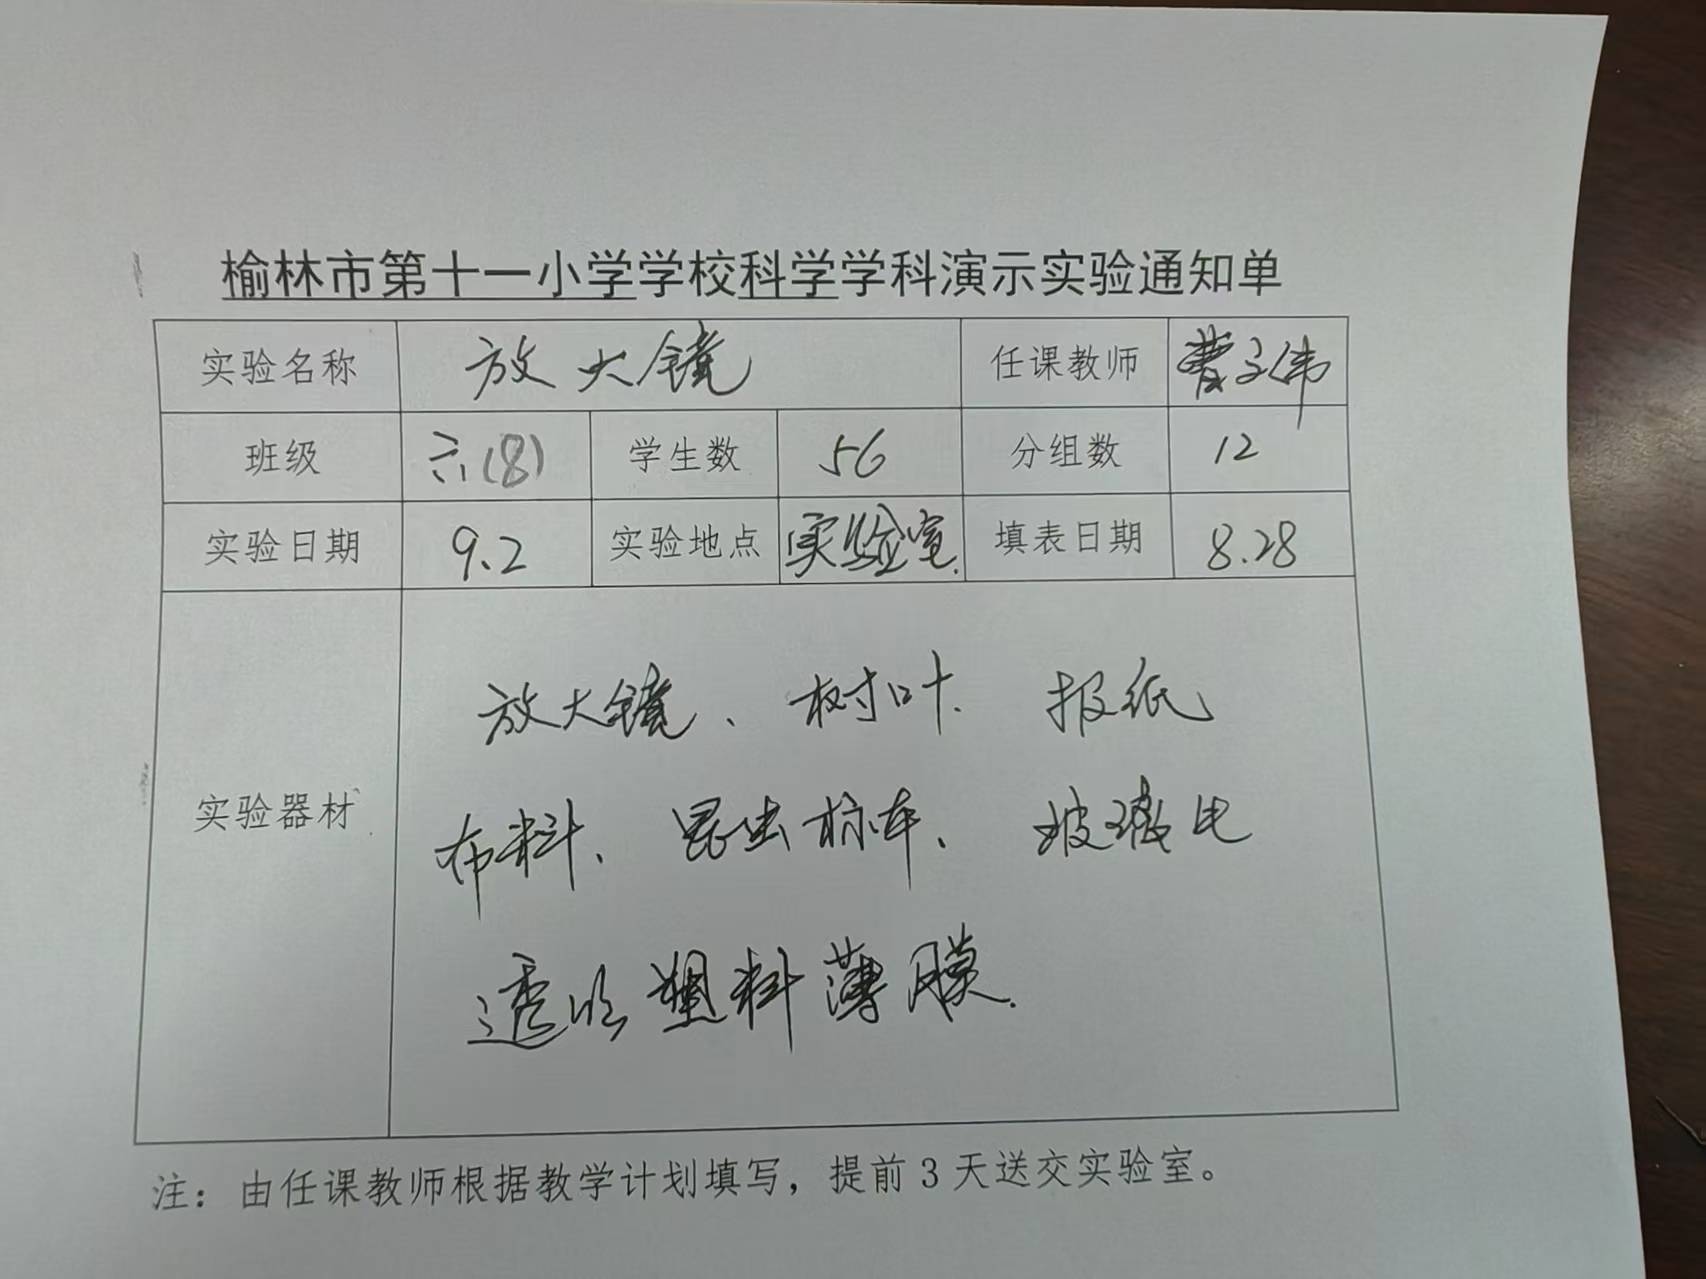 榆林市第十一小学学校科学学科演示实验通知单
实验名称 放大镜 任课教师 曹子伟
班级 六(8) 学生数 56 分组数 12
实验日期 9.2 实验地点 实验室. 填表日期 8.28
放大镜、树叶、报纸
布料、昆虫标本、玻璃片
实验器材
透明塑料薄膜.
注：由任课教师根据教学计划填写，提前3天送交实验室。